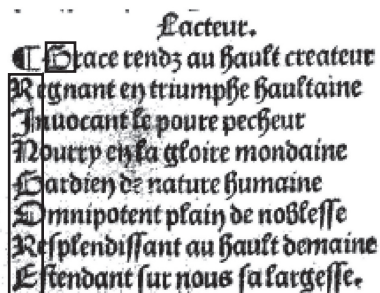 Lacteur.
¶ Grace rendz au hault createur
Regnant en triumphe haultaine
Inuocant le poure pecheur
Nourry en la gloire mondaine
Gardien de nature humaine
Omnipotent plain de noblesse
Resplendissant au hault demaine
Estendant sur nous sa largesse.